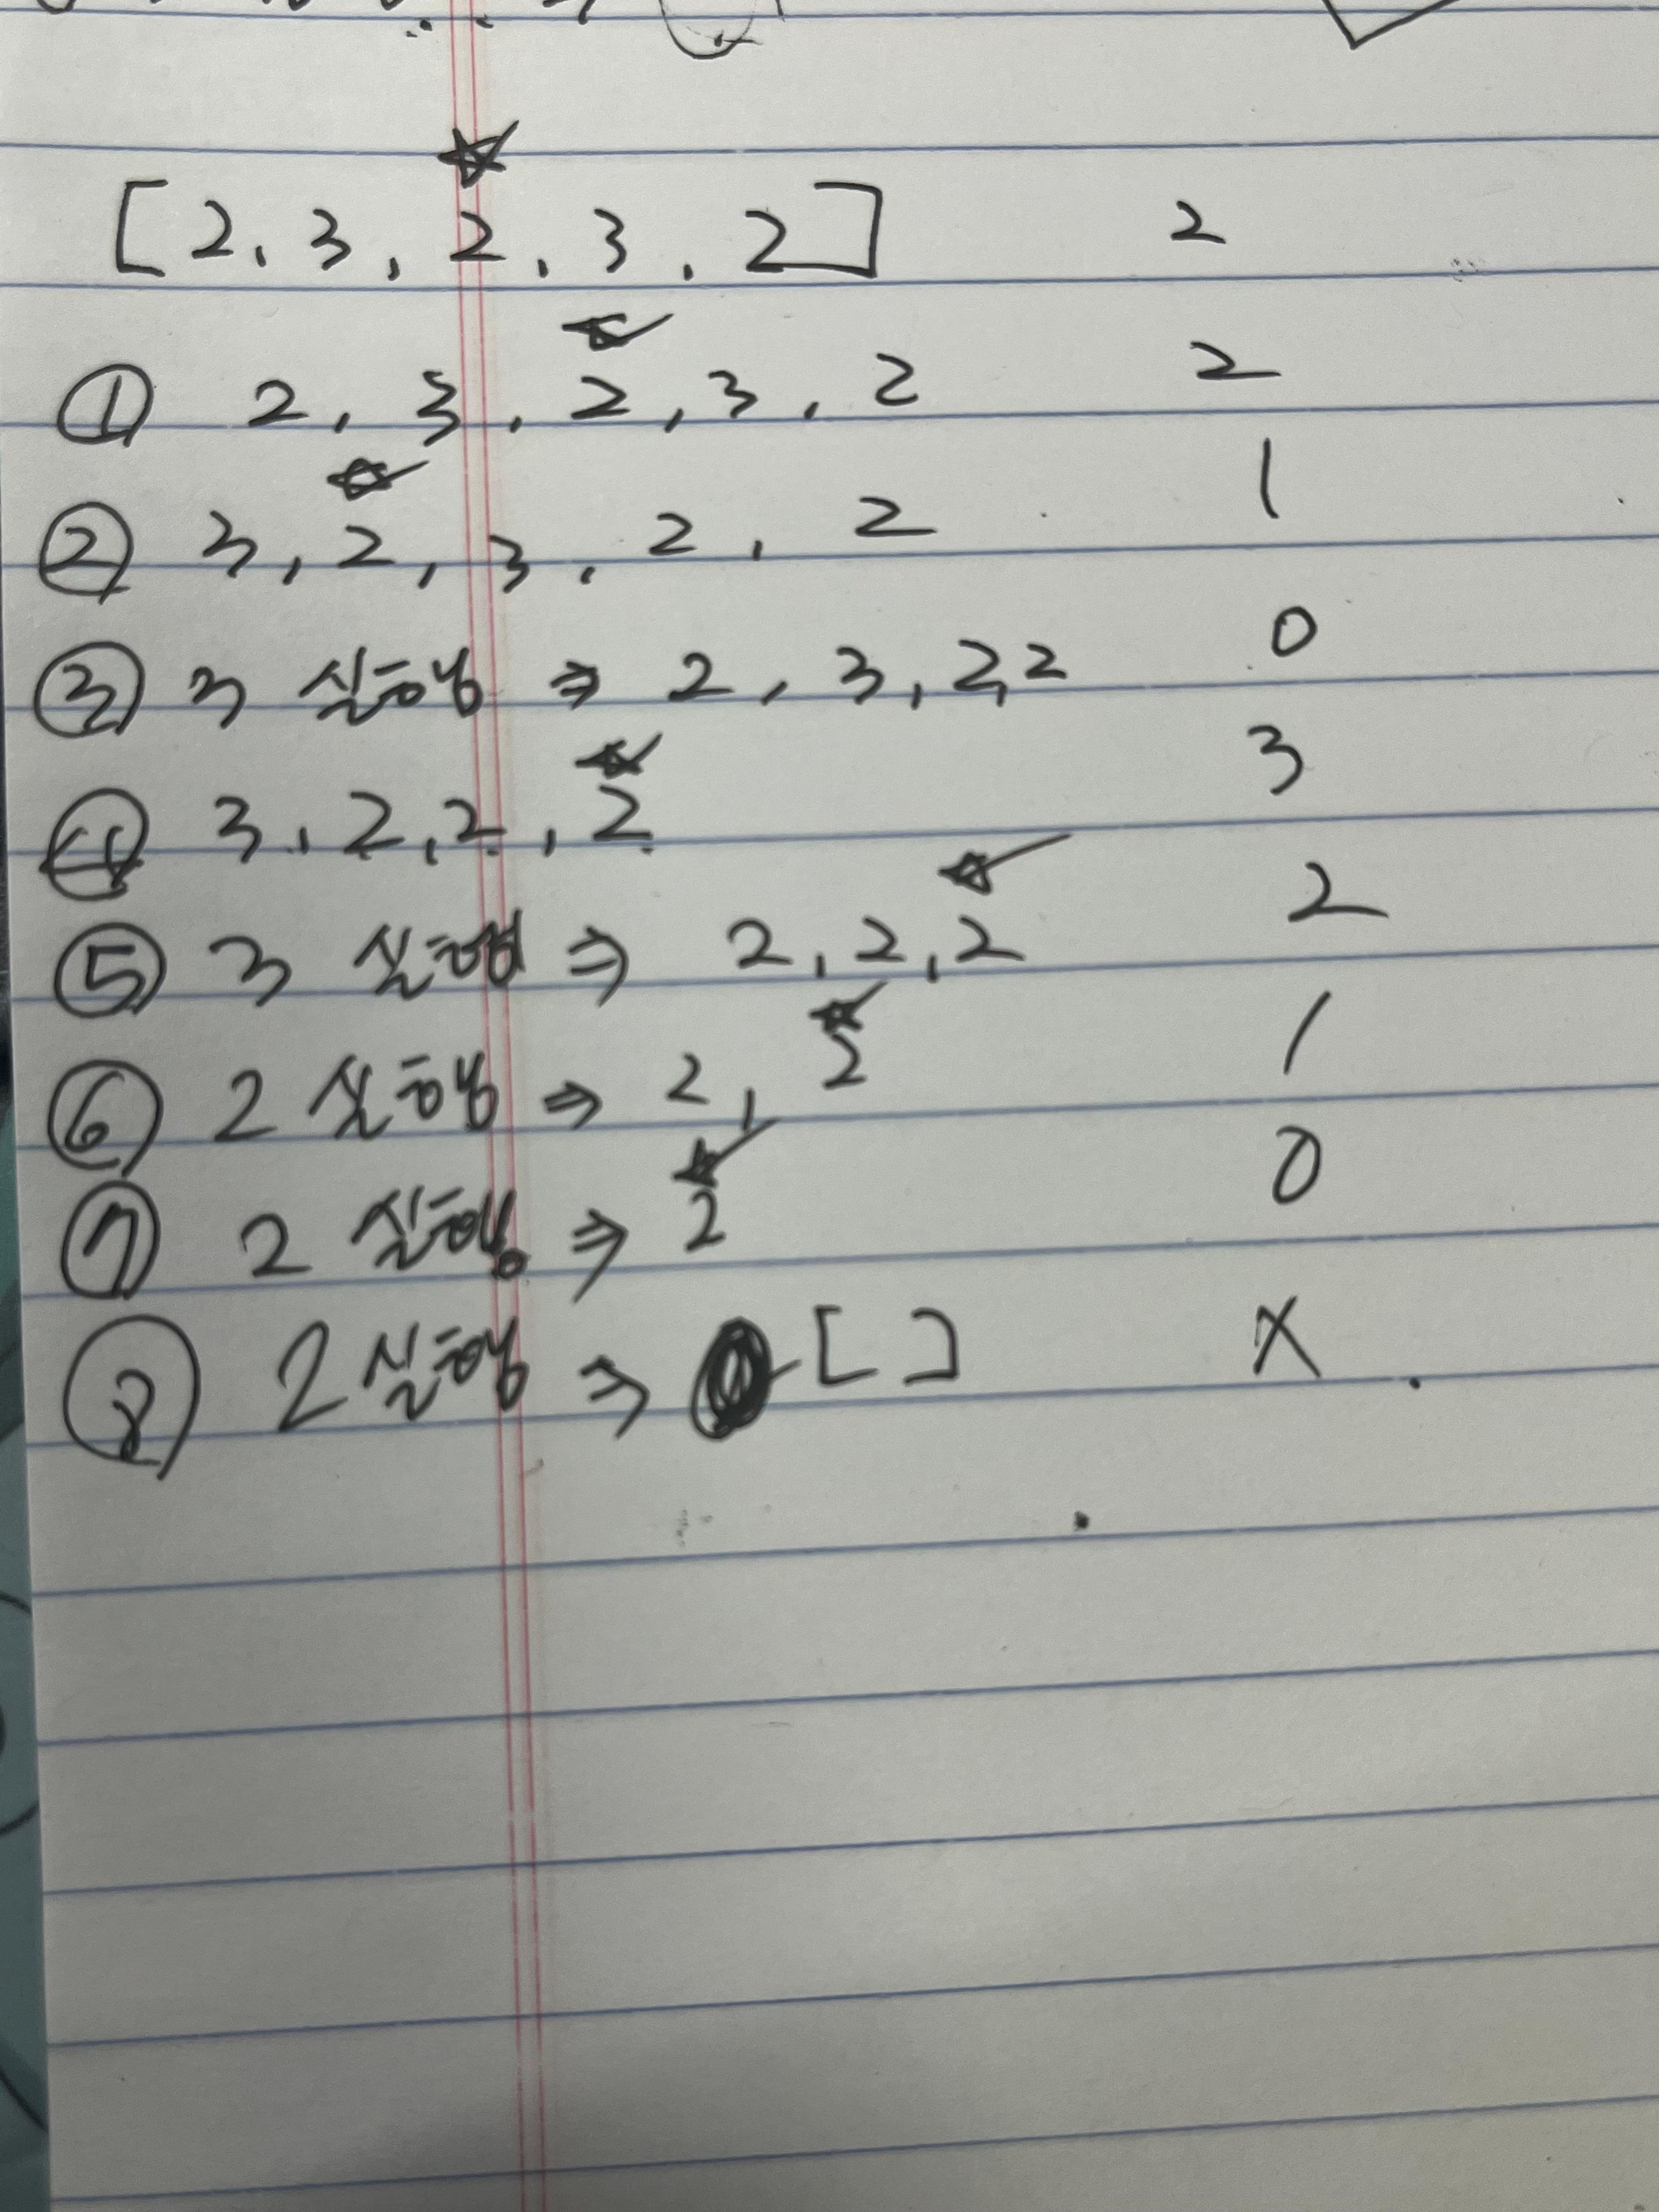 [2, 3, 2, 3, 2] 2
① 2, 3, 2, 3, 2 2
② 3, 2, 3, 2, 2 1
③ 3 실행 ⇒ 2, 3, 2, 2 0
④ 3, 2, 2, 2 3
⑤ 3 실행 ⇒ 2, 2, 2 2
⑥ 2 실행 ⇒ 2, 2 1
⑦ 2 실행 ⇒ 2 0
⑧ 2 실행 ⇒ [ ] X